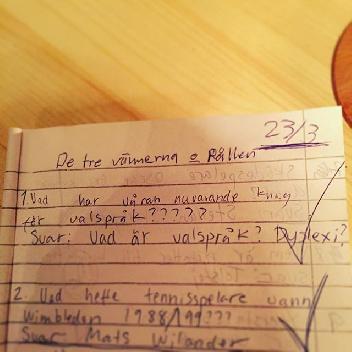 23/3
De tre vännerna o Pållen
1. Vad har våran nuvarande kung
för valspråk?????
Svar: Vad är valspråk? Dyslexi?
2. Vad hette tennisspelare vann
Wimbleden 1988/99???
Svar Mats Wilander